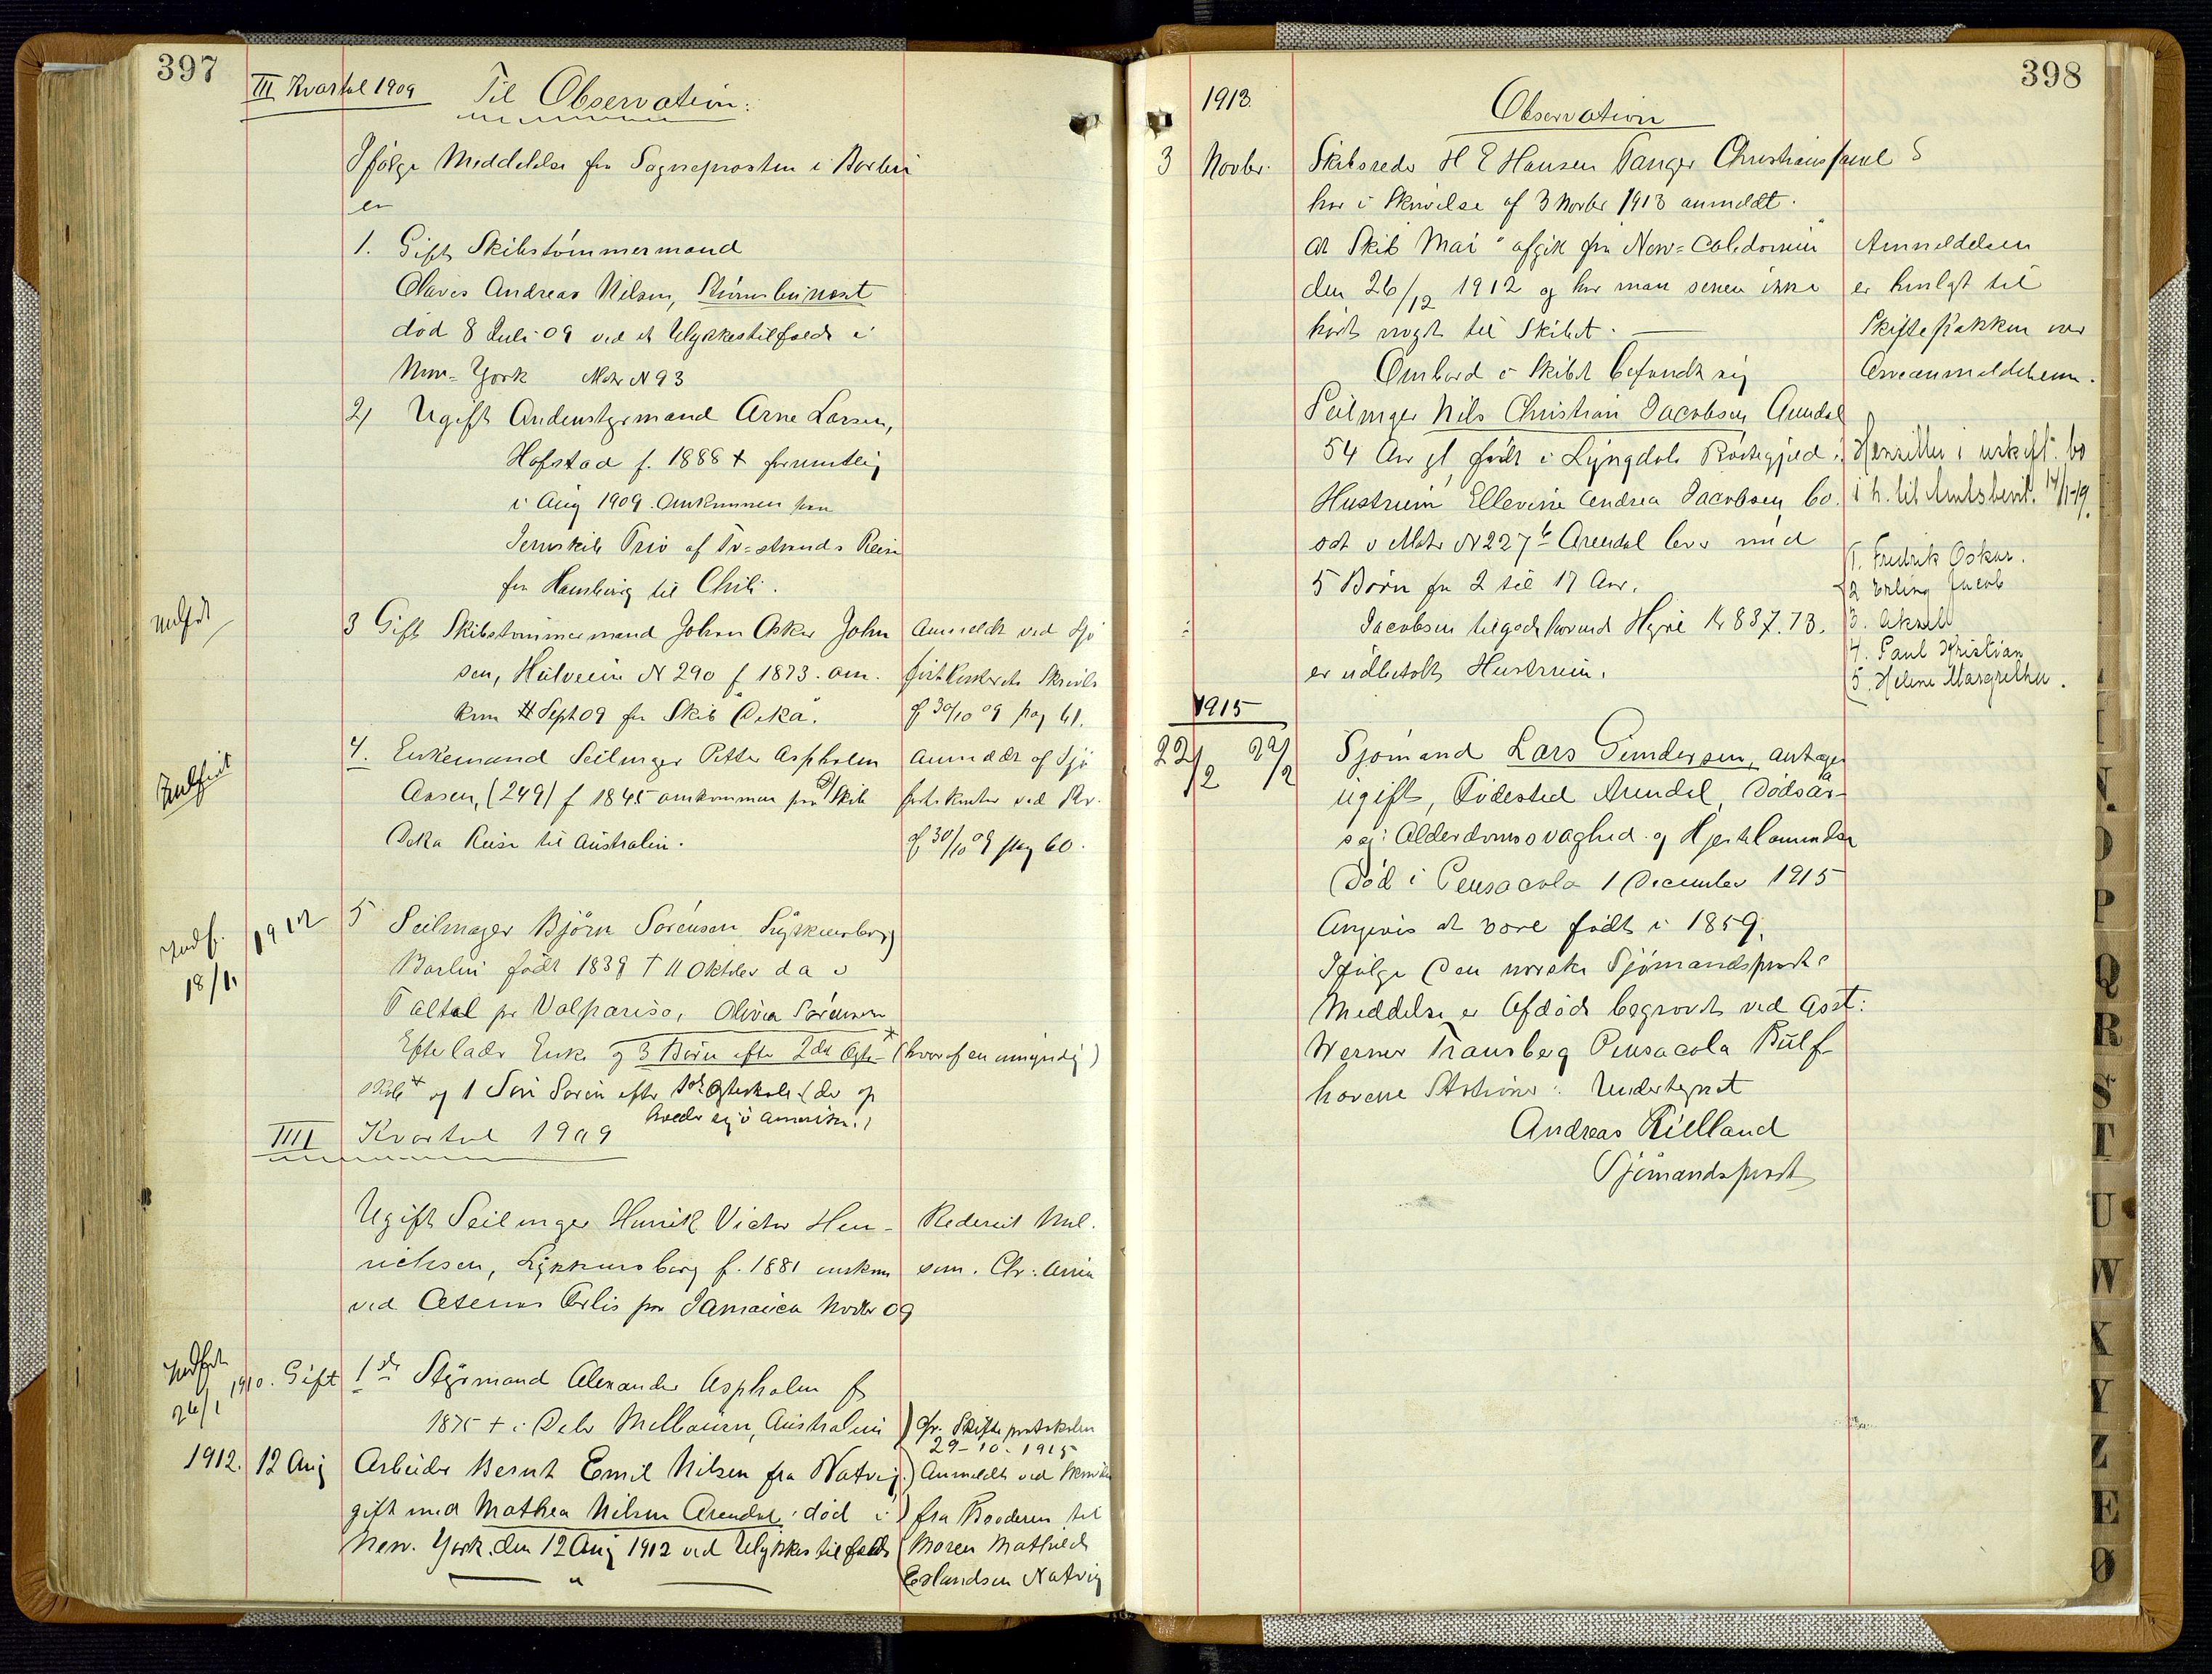 397
III Kvartal 1909 Til Observation:
Ifölge Meddelelse fra Sogneprosten i Barbu
er
1. Gift Skibstömmermand
Olaves Andreas Nilsen,
död 8 Juli 09 ved et Ulykkestilfælde i
New-York Matr N 93
2) Ugift Andenstyrmand Arne Larsen,
Hofstad f. 1888 † formentlig
i Aug 1909. Omkommen paa
Jernskib Trio af Tv=strands Reise
fra Hamburg til Chili.
Indfört
3 Gift Skibstömmermand Johan Oskar John
sen, N 290 f 1873. om.
kom Sept 09 fra Skib Deka.
Anmeldt ved Sjö
fartskontorets Skrivelse
af 30/10 09 pag 61.
Indfört
4. Enkemand Seilmager Petter Aspholm
Aasen, (249) f 1845 omkommen fra Skib
Deka Reise til Australien.
Anmeldt af Sjö
fartskontor ved Skr.
af 30/10 09 pag 60.
Indf. 1912
18/1.
5 Seilmager Björn Sörensen Lykkensborg
Barbu född 1839 † 11 Oktober d a i
Taltal pr Valpariso, Olivia Sörensen
Efterlader Enke og 3 Börn efter 2det Ægte- (hvoraf en umyndig)
skab og 1 Sön Sören efter 1ste Ægteskab (der op
holder sig i Amerika.)
IIII Kvartal 1909
Ugift Seilmager Henrik Victor Hen-
richsen, Lykkensborg f. 1881 omkom
ved Æternes Forlis paa Jamaica Novbr 09
Rederiet
sem. Chr:
Indfört
26/1
1910. Gift 1ste Styrmand Alexander Aspholm f
1875 † i Melbourn, Australien
) Cfr. Skifteprotokolen
29-10-1915
1912. 12 Aug Arbeider Bernt Emil Nilsen fra Natvig.
gift med Mathea Nilsen Arendal död i
New. York. den 12 Aug 1912 ved Ulykkestilfælde
) Anmeldt ved Skrivelse
) fra Broderen til
(Moren Mathilde
Erlandsen Natvig
398
1913. Observation
3 Novbr. Skibsreder H E Hansen Tangen Christianssand S
har i Skrivelse af 3 Novbr 1913 anmeldt.
at Skib "Mai" afgik fra New=Caledonien
den 26/12 1912 og har man senere ikke
hört noget til Skibet.
Anmeldelsen
er henlagt til
Skiftepakken
Ombord i Skibet befandt sig
Seilmager Nils Christian Jacobsen Arendal
54 Aar gl född i Lyngdals Prästegjeld.
Hustruen Ellevine Andrea Jacobsen, bo
sat i Matr N 227b Arendal lever med
5 Börn fra 2 til 17 Aar.
Jacobsen tilgodehavende Hyre Kr 837.73.
er udbetalt Hustruen.
Hensitter i uskift. bo
i h. til 14/1-19.
1. Fredrik Oskar.
2 Erling Jacob
3. Aksel
4. Paul Kristian
5. Helene Margrethe.
1915
22/2 22/2 Sjömand Lars Gundersen, antagen
ugift, Födested Arendal, Dödsaar-
sag: Alderdomssvaghed og Hjertelammelse
Död i Pensacola 1 December 1915
Angives at være födt i 1859.
Ifölge Den norske Sjömandsprest
Meddelse er Afdöde begravet ved Asst:
Werner Pensacola Gulf-
havene Station: Undertegnet
Andreas Kielland
Sjömandsprest
N.
O
P
Q
R
S
T
U
W
X
Y
Z
Æ
Ø